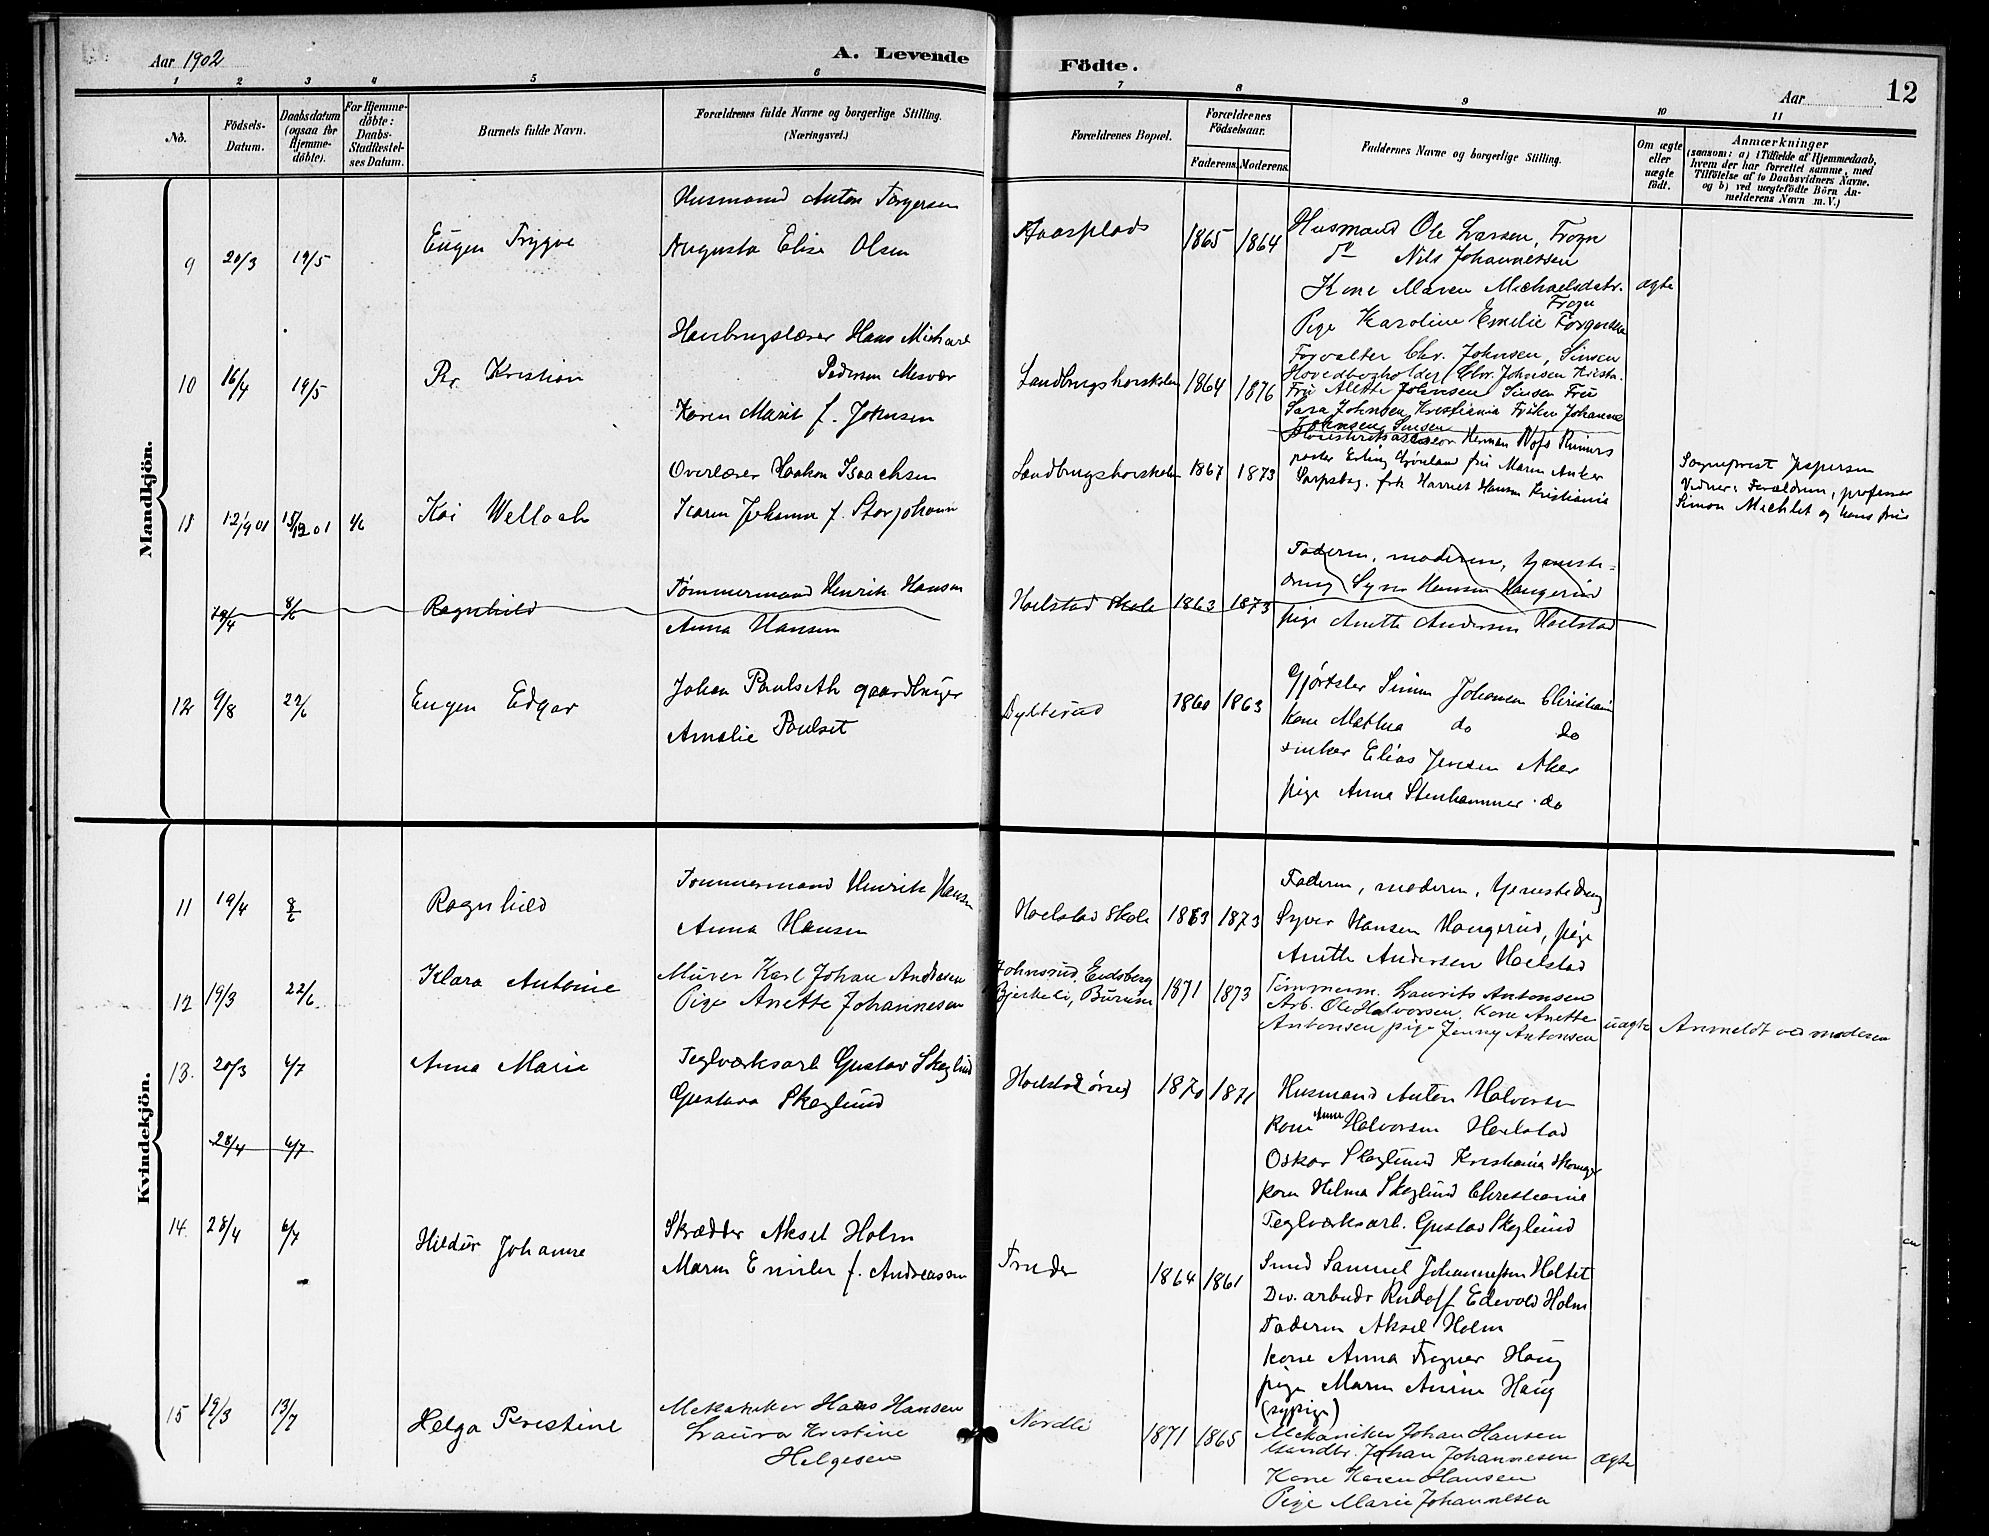 Aar 1902
A. Levende
Födte.
Aar
12
1 2 3 4 5 6 7 8 9 10 11
No.
Födsels-
Datum.
Daabsdatum
(ogsaa for
Hjemme-
döbte).
For Hjemme-
döbte:
Daabs-
Stadfæstel-
ses Datum.
Barnets fulde Navn.
Forældrenes fulde Navne og borgerlige Stilling.
(Næringsvei.)
Forældrenes Bopæl.
Forældrenes
Födselsaar.
Faderens. Moderens.
Faddernes Navne og borgerlige Stilling.
Om ægte
eller
uægte
födt.
Anmærkninger
(saasom: a) i Tilfælde af Hjemmedaab,
hvem der har forrettet samme, med
Tilföielse af to Daabsvidners Navne.
og b) ved uægtefödte Börn An-
melderens Navn m.V.)
Mandkjön.
9 20/3 19/5
Eugen Trygve
Husmand Anton Torgersen
Augusta Elise Olsen
Aarsplads
1865 1864
Husmand Ole Larsen, Frogn
do Nils Johannessen
Kone Maren Michaelsdatr.
Frogn
Pige Karoline Emilie Torgersen
ægte
10 16/4 19/5
Kristian
Havbrugslærer Hans Michael
Pedersen Mesvær
Karen Marit f. Johnsen
Landbrugshøiskolen 1864 1876
Forvalter Chr. Johnsen, Sinsen
Hovedbogholder Chr. Johnsen Krista.
Fru Alette Johnsen Sinsen Fru
Sara Johnsen Kristiania Frøken Johanne
Johnsen, Sinsen
18 12/9 01 15/12 01 1/6
Kai Welloch
Overlærer Haakon Isaachsen
Karen Johanne f. Storjohann
Landbrugshøiskolen 1867 1873
Herman Rolfs Reimers
pastor Erling Grønland fru Maren Anker
Sarpsbg. frk Harriet Hansen Kristiania
Sogneprest Jespersen
Vidner: Forældrene, professor
Simon Mechlet og hans frue
19/4 8/6
Ragnhild
Tømmermand Henrik Hansen
Anna Hansen
Holstad skole 1863 1873
Faderen, moderen, tjeneste-
dreng Syver Hansen Haugerud
pige Anette Andersen Holstad
12 9/8 22/6
Eugen Edgar
Johan Paulseth gaardbruger
Amalie Paulset
Dysterud
1860 1863
Gjørtler Simen Johansen Christiania
Kone Mathea do do
Elias Jensen Aker
pige Anna Stenhammer do
Kvindekjön.
11 19/4 8/6
Ragnhild
Tømmermand Henrik Hansen
Anna Hansen
Holstad skole 1863 1873
Faderen, moderen, tjenestedreng
Syver Hansen Haugerud, pige
Anette Andersen Holstad
12 19/3 22/6
Klara Antonie
Murer Karl Johan Andresen
Pige Anette Johannesen
Johnsrud, Eidsberg
Bjerkeli,
1871 1873
Tømmerm. Laurits Antonsen
Arb. Ole Halvorsen. Kone Anette
Antonsen pige Jenny Antonsen
uægte
Anmeldt ved moderen
13. 20/3 6/7
Anna Marie
Teglværksarb Gustav Skoglund
Gustava Skoglund
Holstad
1870 1871
Husmand Anton Halvorsen
Kone Anne Halvorsen Holstad
Oskar Skoglund Kristiania
Kone Helma Skoglund Christiania
Teglværksarb. Gustav Skoglund
28/4 6/7
14. 28/4 6/7
Hildur Johanne
Skrædder Aksel Holm
Maren Emilie f. Andreassen
1864 1861
Smed Samuel Johannessen Holtet
Div. arbeider Rudolf Edevold Holm
Faderen Aksel Holm
kone Anna Fregner Haug
pige Maren Anine Haug
(sypige)
15 19/3 13/7
Helga Kristine
Mekaniker Hans Hansen
Laura Kristine
Helgesen
Nordli
1871 1865
Mekaniker Johan Hansen
Gaardbr. Johan Johannesen
Kone Karen Hansen
Pige Marie Johannesen
ægte